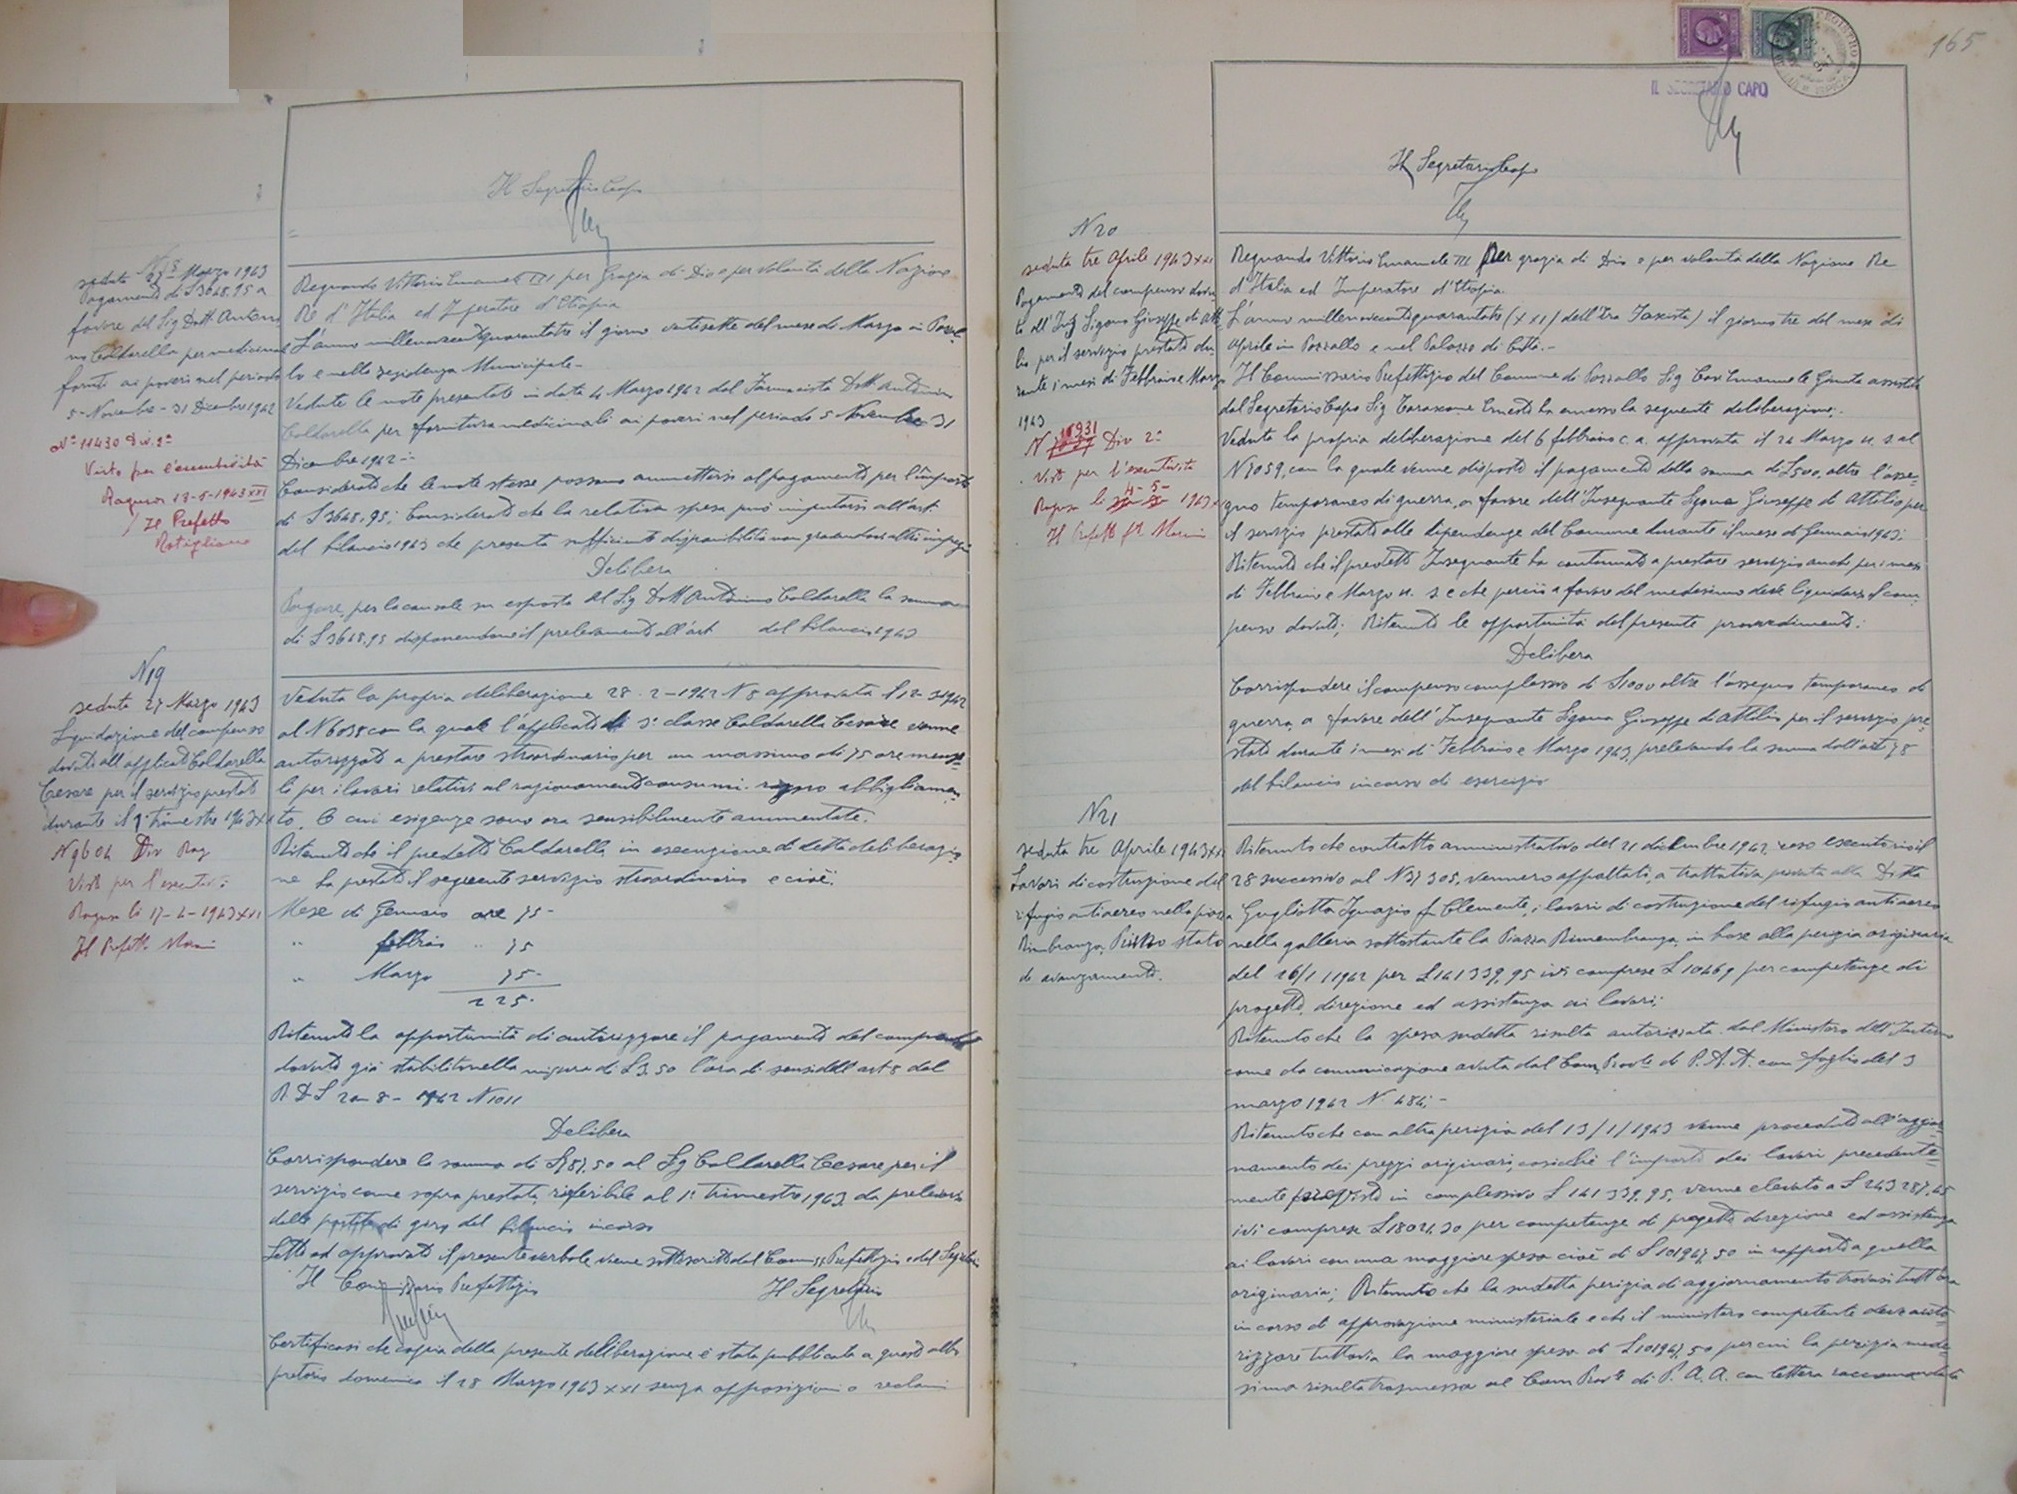 Il Segretario Capo
N 18
seduta 27 Marzo 1943
Pagamento di £ 3648,95 a
favore del Sig Dott. Antoni
no Caldarella per medicinali
forniti ai poveri nel periodo
5 - Novembre - 31 Dicembre 1942
N° 11430 Div. 2ª
Visto per l'esecutività
Ragusa 13-5-1943 XXI
Il Prefetto
Regnando Vittorio Emanuele III per Grazia di Dio e per volontà della Nazione
Re d'Italia ed Imperatore d'Etiopia
L'anno millenovecentoquarantatre il giorno ventisette del mese di Marzo in Pozzal
lo e nella residenza Municipale -
Vedute le note presentate in data 4 Marzo 1942 dal Farmacista Dott. Antonino
Caldarella per fornitura medicinali ai poveri nel periodo 5 Novembre 31
Dicembre 1942 -
Considerato che le note stesse possono ammettersi al pagamento per l'importo
di £ 3648,95; Considerato che la relativa spesa può imputarsi all'art.
del bilancio 1943 che presenta sufficiente disponibilità non gravandovi altri impegni
Delibera
Pagare, per la causale su esposta al Sig Dott Antonino Caldarella la somma
di £ 3648,95 disponendone il prelevamento all'art del bilancio 1943
N 19
seduta 27 Marzo 1943
Liquidazione del compenso
dovuto all'applicato Caldarella
Cesare per il servizio prestato
durante il 1° trimestre 1943 XXI
N 9604 Div Rag
Visto per l'esecutiv:
Ragusa li 17-4-1943 XXI
Il Prefetto
Veduta la propria deliberazione 28-2-1942 N 8 approvata il 12-3-1942
al N 6038 con la quale l'applicato di 3ª classe Caldarella Cesare venne
autorizzato a prestare straordinario per un massimo di 75 ore mensi=
li per i lavori relativi al razionamento consumi abbigliamen=
to, le cui esigenze sono ora sensibilmente aumentate.
Ritenuto che il predetto Caldarella in esecuzione di detta deliberazio=
ne ha prestato il seguente servizio straordinario e cioè:
Mese di Gennaio ore 75 -
" febbraio " 75
" Marzo 75 -
225 -
Ritenuto la opportunità di autorizzare il pagamento del compenso
dovuto già stabilito nella misura di £ 3.50 l'ora di sensi dell'art 8 del
R. D L 8 - 1942 N 1011
Delibera
Corrispondere la somma di £ 787,50 al Sig Caldarella Cesare per il
servizio come sopra prestato riferibile al 1° trimestre 1943 da prelevarsi
dalle partite di giro del bilancio in corso
Letto ed approvato il presente verbale viene sottoscritto dal Comm. Prefettizio e dal Segretario
Il Commissario Prefettizio Il Segretario
Certificasi che copia della presente deliberazione è stata pubblicata a questo albo
pretorio domenica il 28 Marzo 1943 XXI senza opposizioni o reclami
165
IL SEGRETARIO CAPO
Il Segretario Capo
N 20
seduta tre Aprile 1943 XXI
Pagamento del compenso dovu
to all'Ins Sigona Giuseppe di Atti
lio per il servizio prestato du
rante i mesi di Febbraio e Marzo
1943
N 10931 Div 2ª
Visto per l'esecutività
Ragusa li 4-5-1943
Il Prefetto
Regnando Vittorio Emanuele III per grazia di Dio e per volontà della Nazione Re
d'Italia ed Imperatore d'Etiopia.
L'anno millenovecentoquarantatre (XXI) dell'Era Fascista) il giorno tre del mese di
Aprile in Pozzallo e nel Palazzo di Città. -
Il Commissario Prefettizio del Comune di Pozzallo Sig Cav Emanuele Giunta assistito
dal Segretario Capo Sig Tarascone Ernesto ha emesso la seguente deliberazione:
Veduta la propria deliberazione del 6 febbraio c. a. approvata il 24 Marzo u. s. al
N 7059, con la quale venne disposto il pagamento della somma di £ 500, oltre l'asse=
gno temporaneo di guerra, a favore dell'Insegnante Sigona Giuseppe di Attilio per
il servizio prestato alle dipendenze del Comune durante il mese di Gennaio 1943;
Ritenuto che il predetto Insegnante ha continuato a prestare servizio anche per i mesi
di Febbraio e Marzo u. s. e che perciò a favore del medesimo deve liquidarsi il com
penso dovuto; Ritenuta la opportunità del presente provvedimento:
Delibera
Corrispondere il compenso complessivo di £ 1000 oltre l'assegno temporaneo di
guerra, a favore dell'Insegnante Sigona Giuseppe di Attilio per il servizio pre
stato durante i mesi di Febbraio e Marzo 1943, prelevando la somma dall'art 78
del bilancio in corso di esercizio
N 21
seduta tre Aprile 1943 XXI
Lavori di costruzione del
rifugio antiaereo nella piazza
Rimembranza. Primo stato
di avanzamento.
Ritenuto che contratto amministrativo del 21 dicembre 1942, reso esecutorio il
28 successivo al N 37305, vennero appaltati, a trattativa privata alla Ditta
Gugliotta Ignazio f. Clemente, i lavori di costruzione del rifugio antiaereo
nella galleria sottostante la Piazza Rimembranza, in base alla perizia originaria
del 26/1/1942 per £ 141339,95 ivi comprese £ 10469 per competenze di
progetto, direzione ed assistenza ai lavori;
Ritenuto che la spesa sudetta risulta autorizzata dal Ministero dell'Interno
come da comunicazione avuta dal Com. Prov.le di P. A. A. con foglio del 3
marzo 1942 N. 484; -
Ritenuto che con altra perizia del 13/1/1943 venne proceduto all'aggior=
namento dei prezzi originari, cosicchè l'importo dei lavori precedente=
mente previsto in complessivo £ 141339,95, venne elevato a £ 243287,45
ivi comprese £ 18021,30 per competenze di progetto direzione ed assistenza
ai lavori con una maggiore spesa cioè di £ 101947,50 in rapporto a quella
originaria; Ritenuto che la sudetta perizia di aggiornamento trovasi tutt'ora
in corso di approvazione ministeriale e che il ministero competente deve auto
rizzare tuttavia la maggiore spesa di £ 101947,50 per cui la perizia mede=
sima risulta trasmessa al Com Prov.le di P. A. A. con lettera raccomandata